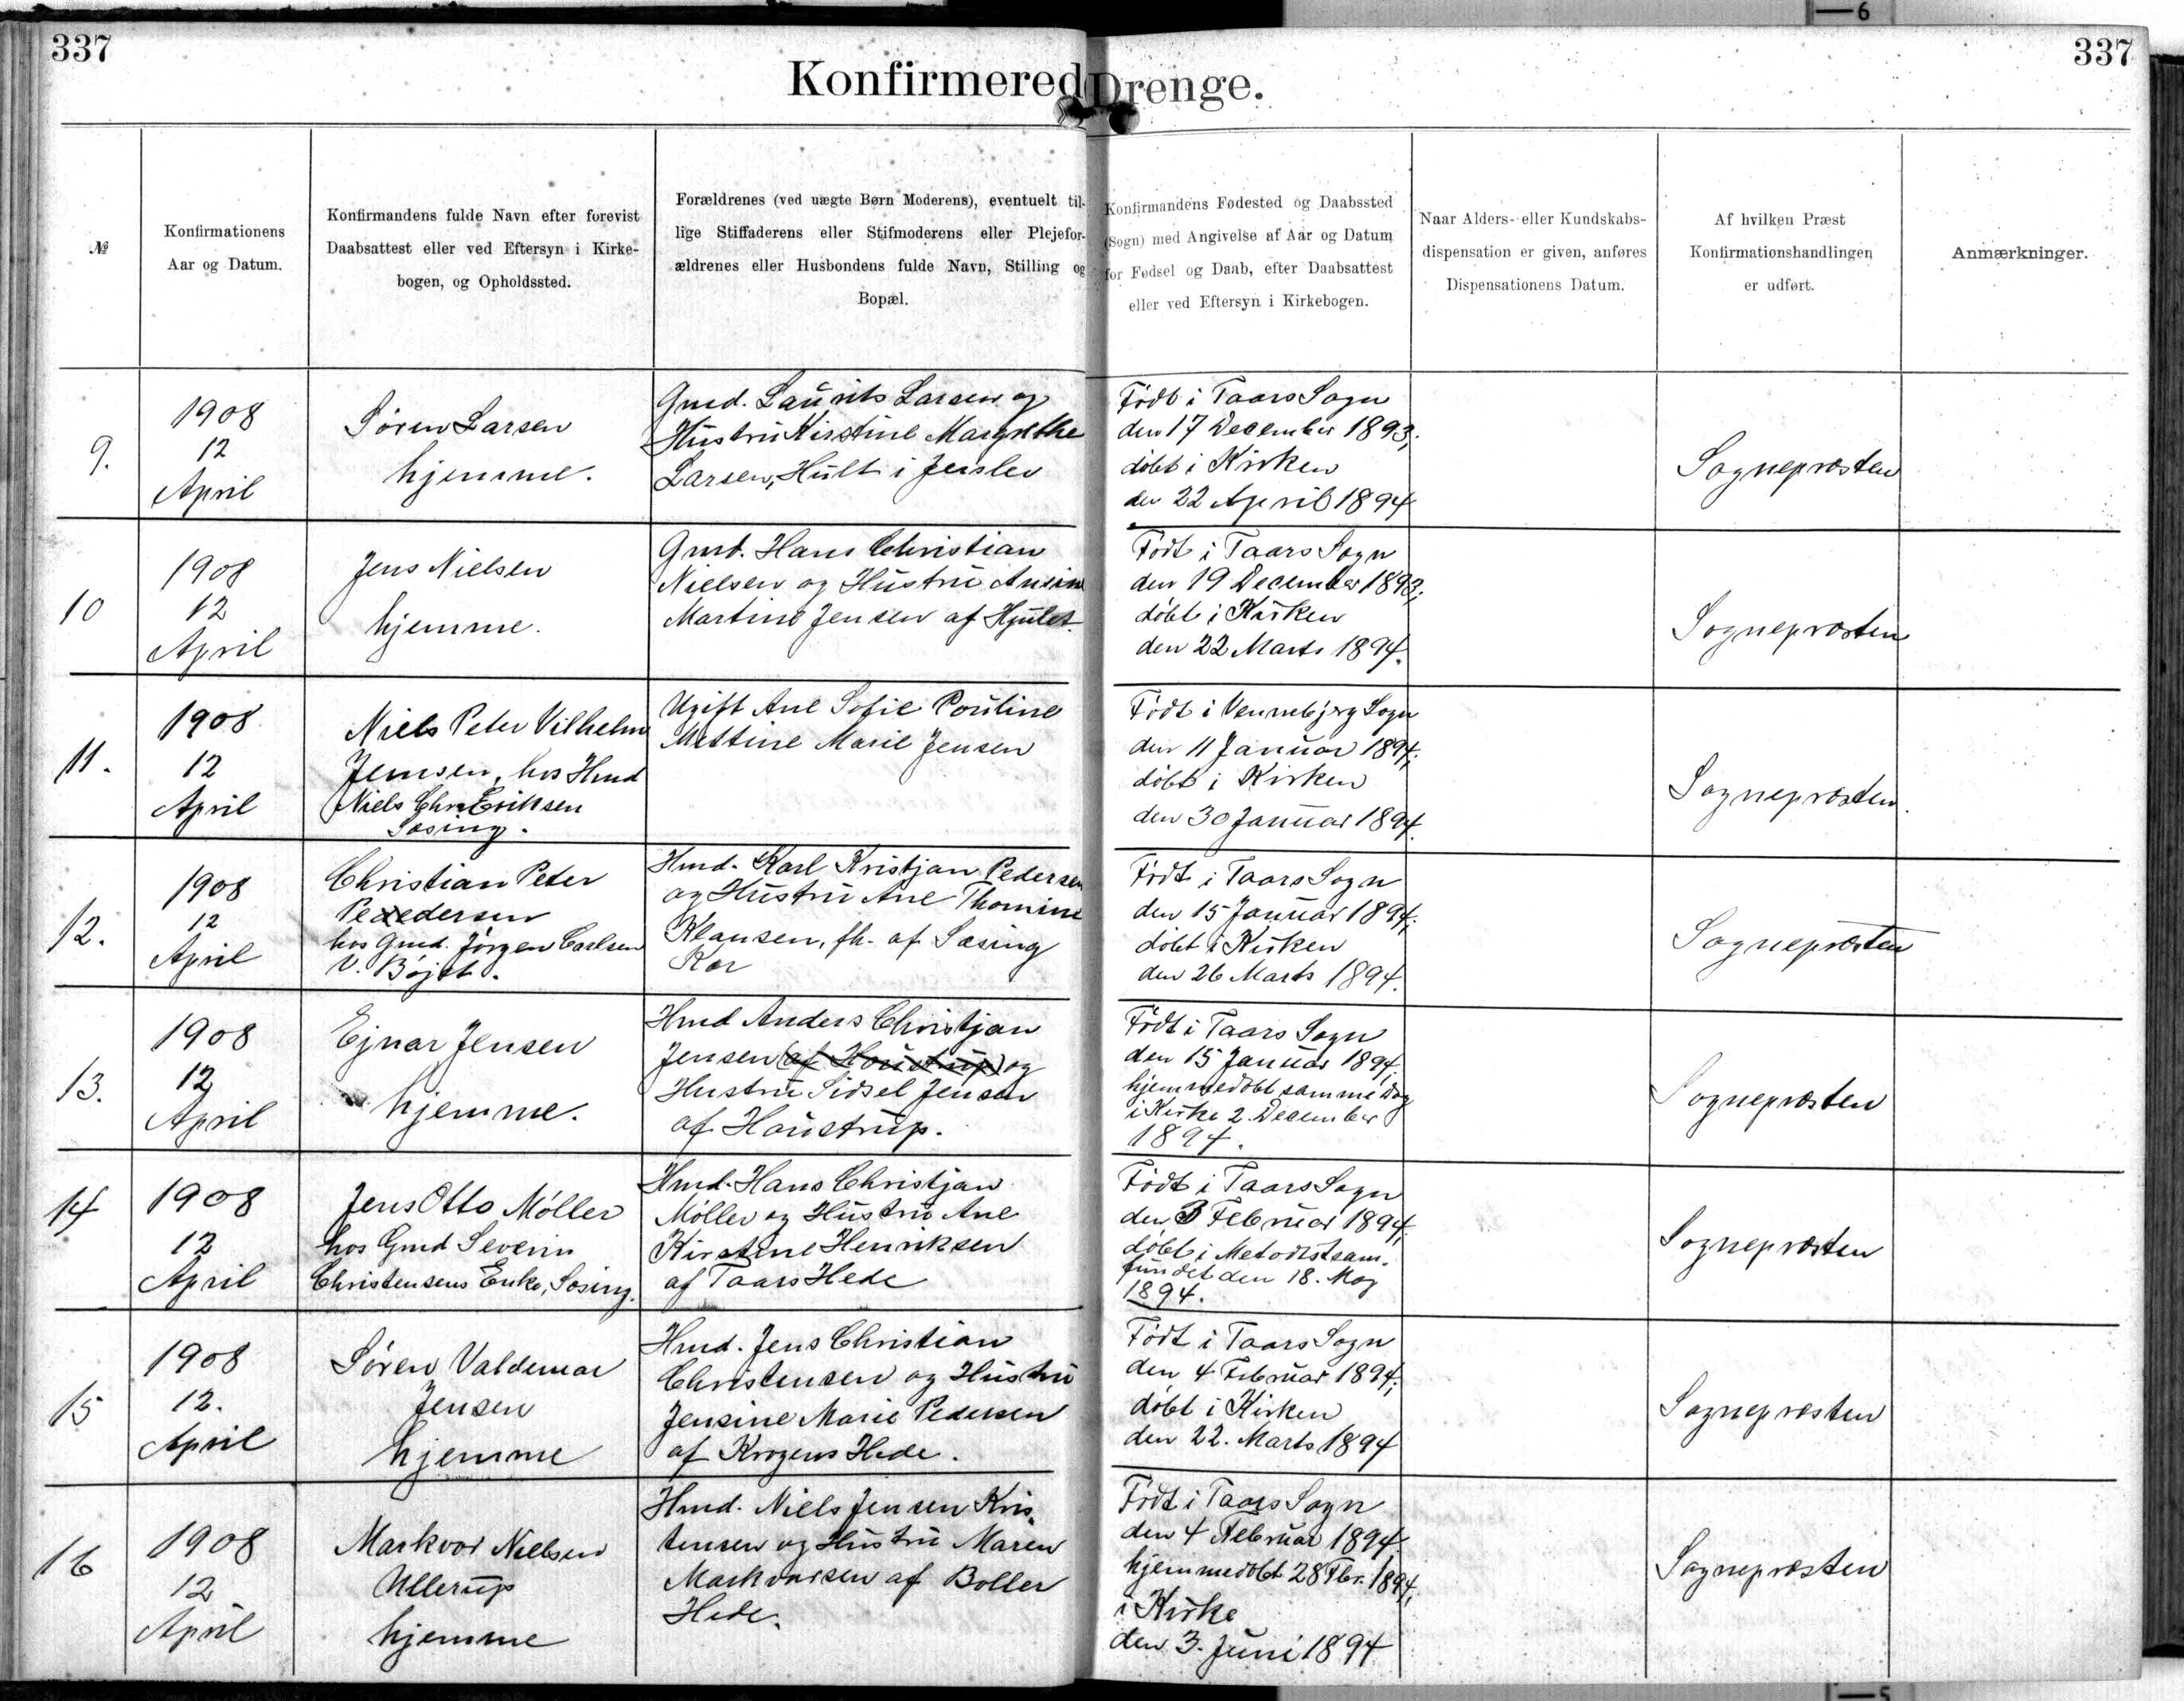 6
337
337
Konfirmered Drenge.
№
Konfirmationens
Aar og Datum.
Konfirmandens fulde Navn efter forevist
Daabsattest eller ved Eftersyn i Kirke-
bogen, og Opholdssted.
Forældrenes (ved uægte Børn Moderens), eventuelt til-
lige Stiffaderens eller Stifmoderens eller Plejefor-
ældrenes eller Husbondens fulde Navn, Stilling og
Bopæl.
Konfirmandens Fødested og Daabssted
(Sogn) med Angivelse af Aar og Datum
for Fødsel og Daab, efter Daabsattest
eller ved Eftersyn i Kirkebogen.
Naar Alders- eller Kundskabs-
dispensation er given, anføres
Dispensationens Datum.
Af hvilken Præst
Konfirmationshandlingen
er udført.
Anmærkninger.
9.
1908
12
April
Søren Larsen
hjemme.
Gmd. Laurits Larsen og
Hustru Kirstine Margrethe
Larsen, Hult i Jerslev
Født i Taars Sogn
den 17 December 1893;
døbt i Kirken
den 22 April 1894
Sognepræsten
10
1908
12
April
Jens Nielsen
hjemme.
Gmd. Hans Christian
Nielsen og Hustru Ansine
Martine Jensen af Hjulet.
Født i Taars Sogn
den 19 December 1893;
døbt i Kirken
den 22 Marts 1894.
Sognepræsten
11.
1908
12
April
Niels Peter Vilhelm
Jensen, hos Hmd
Niels Chr. Eriksen
Sæsing.
Ugift Ane Sofie Pouline
Mettine Marie Jensen
Født i Vennebjerg Sogn
den 11 Januar 1894;
døbt i Kirken
den 30 Januar 1894.
Sognepræsten.
12.
1908
12
April
Christian Peter
Pededersen
hos Gmd. Jørgen Carlsen
V. Bøjet.
Hmd. Karl Kristjan Pedersen
og Hustru Ane Thomine
Klausen, fh. af Sæsing
Kær
Født i Taars Sogn
den 15 Januar 1894;
døbt i Kirken
den 26 Marts 1894.
Sognepræsten
13.
1908
12
April
Ejnar Jensen
hjemme.
Hmd Anders Christjan
Jensen (af Houstrup) og
Hustru Sidsel Jensen
af Houstrup.
Født i Taars Sogn
den 15 Januar 1894;
hjemmedøbt samme Dag
i Kirke 2. December
1894.
Sognepræsten
14
1908
12
April
Jens Otto Møller
hos Gmd Severin
Christensens Enke, Sæsing.
Hmd. Hans Christjan
Møller og Hustru Ane
Kirstine Henriksen
af Taars Hede
Født i Taars Sogn
den 3 Februar 1894;
døbt i Metodistsam-
fundet den 18. Maj
1894.
Sognepræsten
15
1908
12.
April
Søren Valdemar
Jensen
hjemme
Hmd. Jens Christian
Christensen og Hustru
Jensine Marie Pedersen
af Krogens Hede.
Født i Taars Sogn
den 4 Februar 1894;
døbt i Kirken
den 22. Marts 1894
Sognepræsten
16
1908
12
April
Markvor Nielsen
Ullerup
hjemme
Hmd. Niels Jensen Kris-
tensen og Hustru Maren
Markvorsen af Boller
Hede.
Født i Taars Sogn
den 4 Februar 1894.
hjemmedøbt 28 Fbr. 1894;
i Kirke
den 3. Juni 1894
Sognepræsten
5